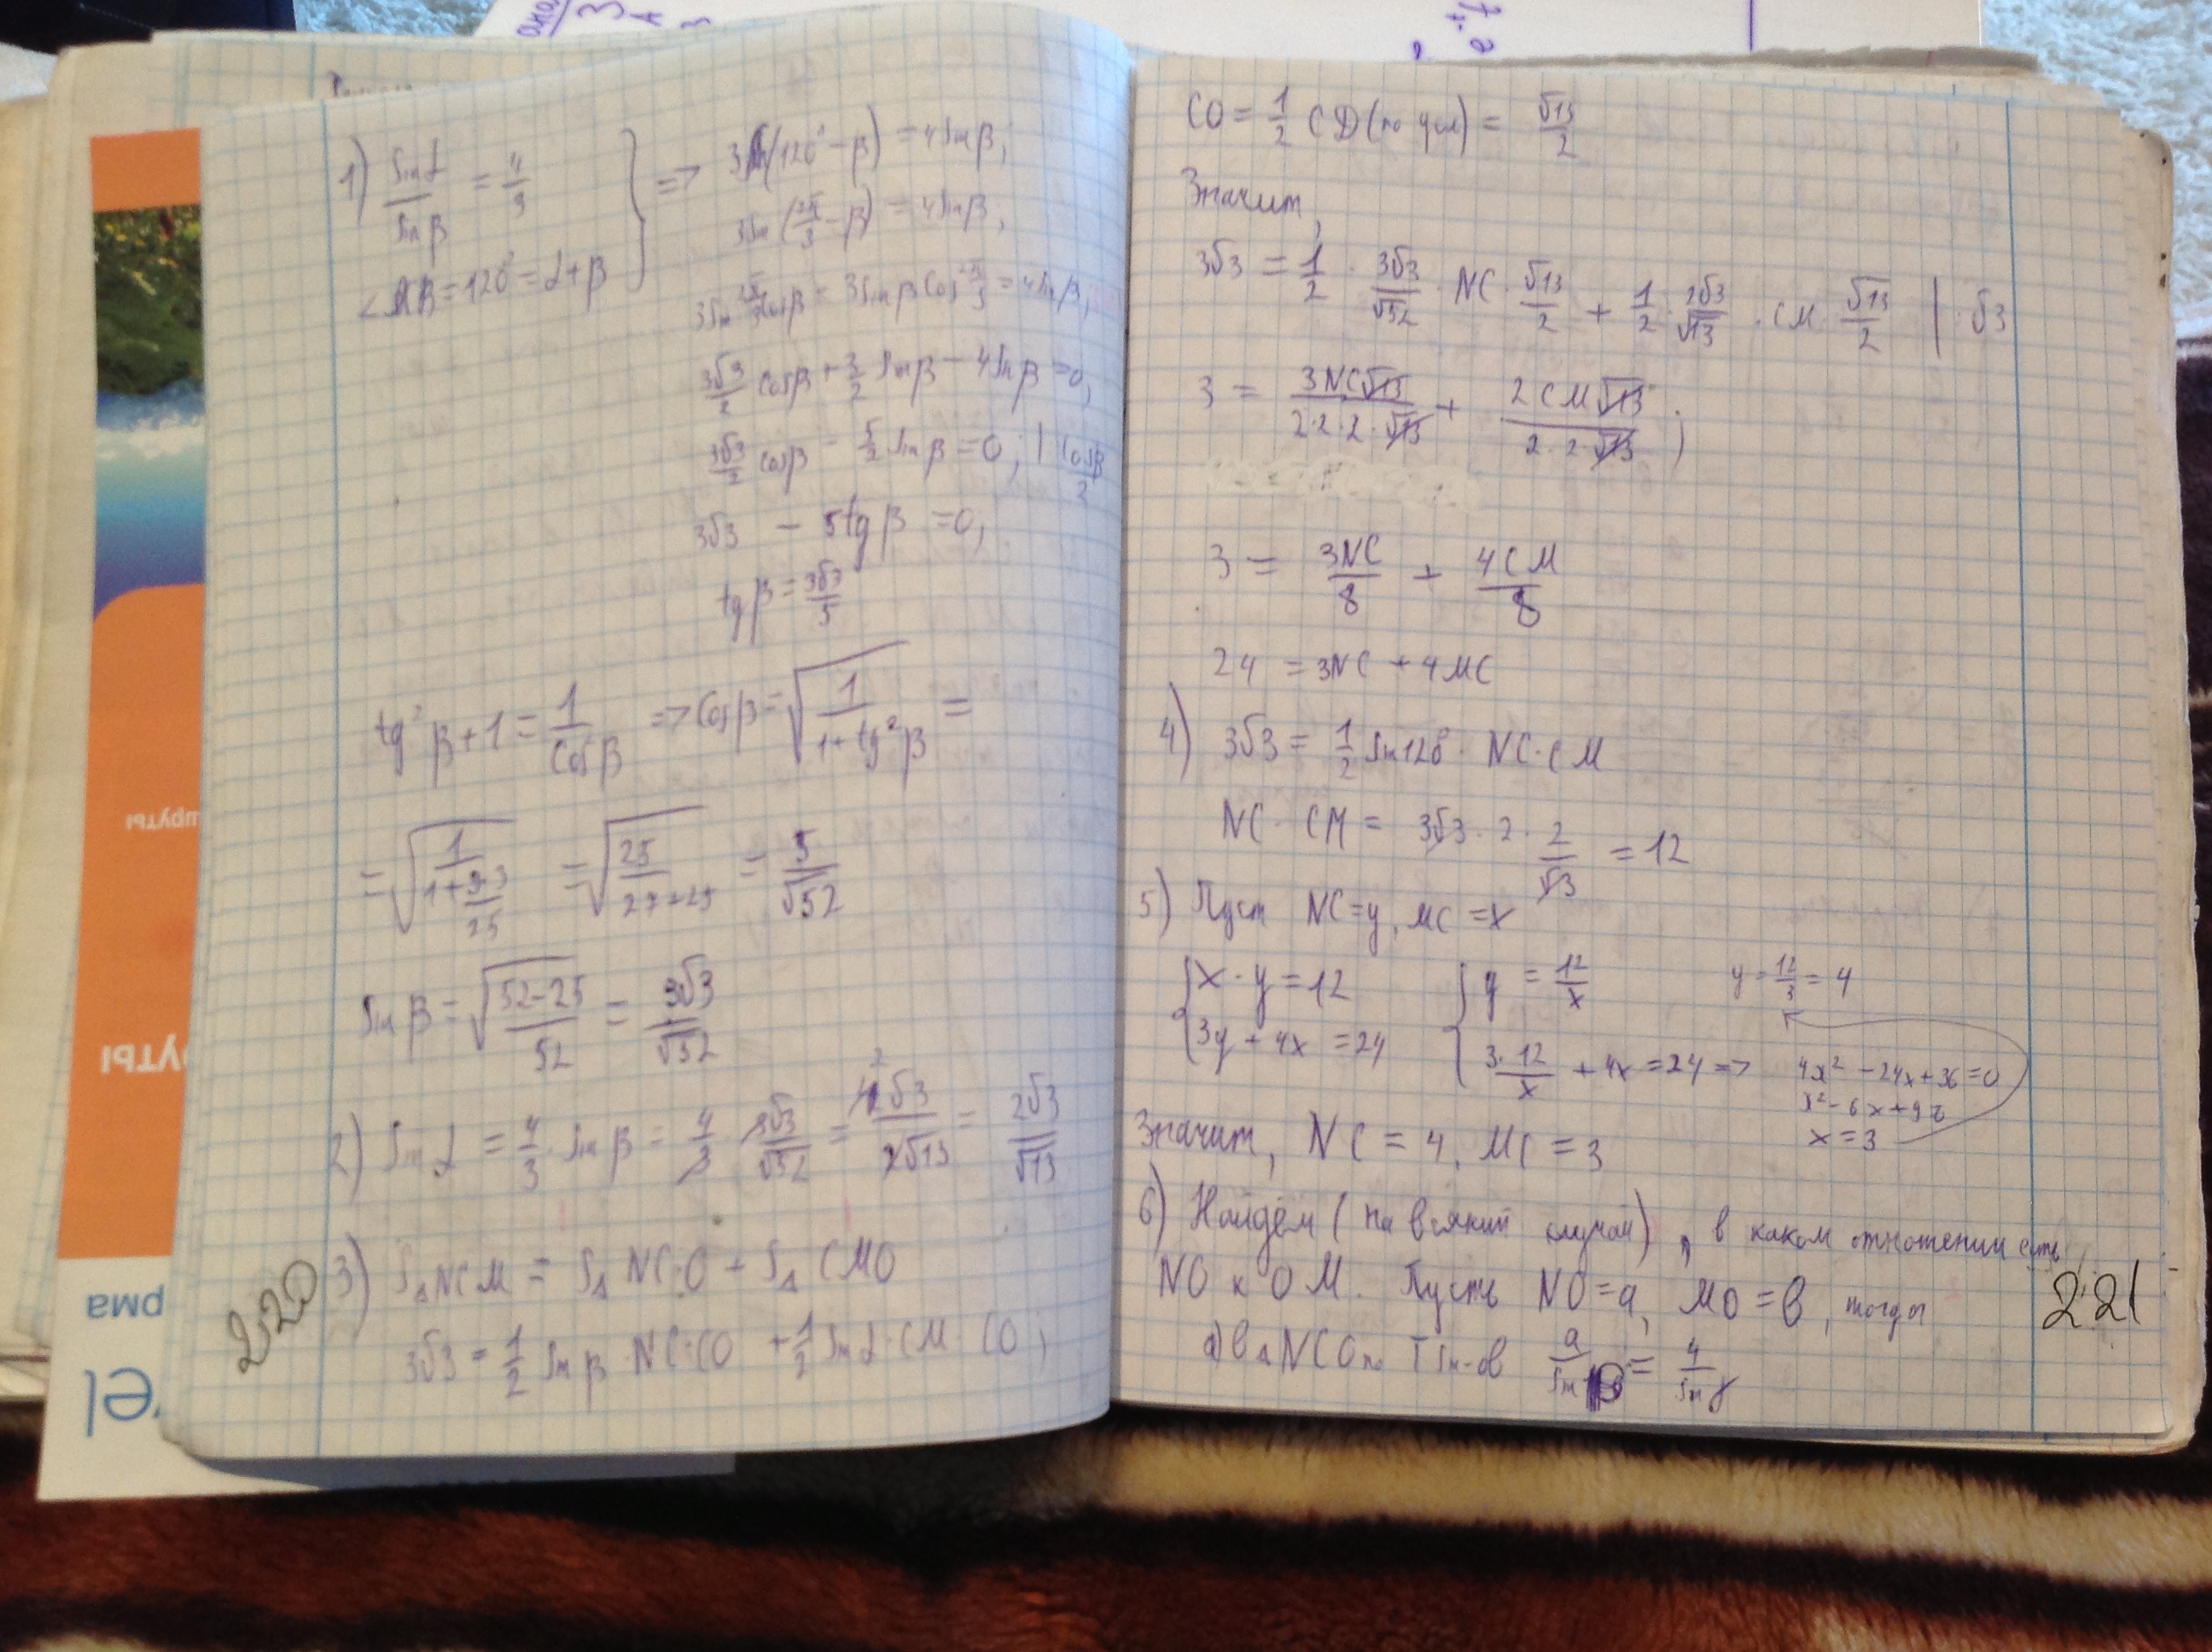 1) sinα / sinβ = 4/3
∠AB = 120° = α + β
} => 3sin(120° - β) = 4sinβ;
3sin(2π/3 - β) = 4sinβ;
3sin 2π/3 cosβ - 3sinβ cos 2π/3 = 4sinβ;
3√3/2 cosβ + 3/2 sinβ - 4sinβ = 0;
3√3/2 cosβ - 5/2 sinβ = 0; | cosβ/2
3√3 - 5tgβ = 0;
tgβ = 3√3/5
tg²β + 1 = 1/cosβ => cosβ = √(1/(1+tg²β)) =
= √(1/(1+9·3/25)) = √(25/(27+25)) = 5/√52
sinβ = √((52-25)/52) = 3√3/√52
2) sinα = 4/3 · sinβ = 4/3 · 3√3/√52 = 4√3/2√13 = 2√3/√13
3) S△NCM = S△NCO + S△CMO
3√3 = 1/2 sinβ · NC · CO + 1/2 sinα · CM · CO;
2.20
CO = 1/2 CD (по усл) = √13/2
Значит,
3√3 = 1/2 · 3√3/√52 · NC · √13/2 + 1/2 · 2√3/√13 · CM · √13/2 | √3
3 = 3NC√13/(2·2·2·√13) + 2CM√13/(2·2·√13);
3 = 3NC/8 + 4CM/8
24 = 3NC + 4MC
4) 3√3 = 1/2 sin120° · NC · CM
NC · CM = 3√3 · 2 · 2/√3 = 12
5) Пуст NC = y, MC = x
{ x · y = 12
3y + 4x = 24
{ y = 12/x
3·12/x + 4x = 24 =>
4x² - 24x + 36 = 0
x² - 6x + 9 =
x = 3
y = 12/3 = 4
Значит, NC = 4, MC = 3
6) Найдём (на всякий случай), в каком отношении есть
NO к OM. Пусть NO = a, MO = b, тогда
а) в △NCO по T sin-ов a/sinβ = 4/sinγ
2.21
маршруты